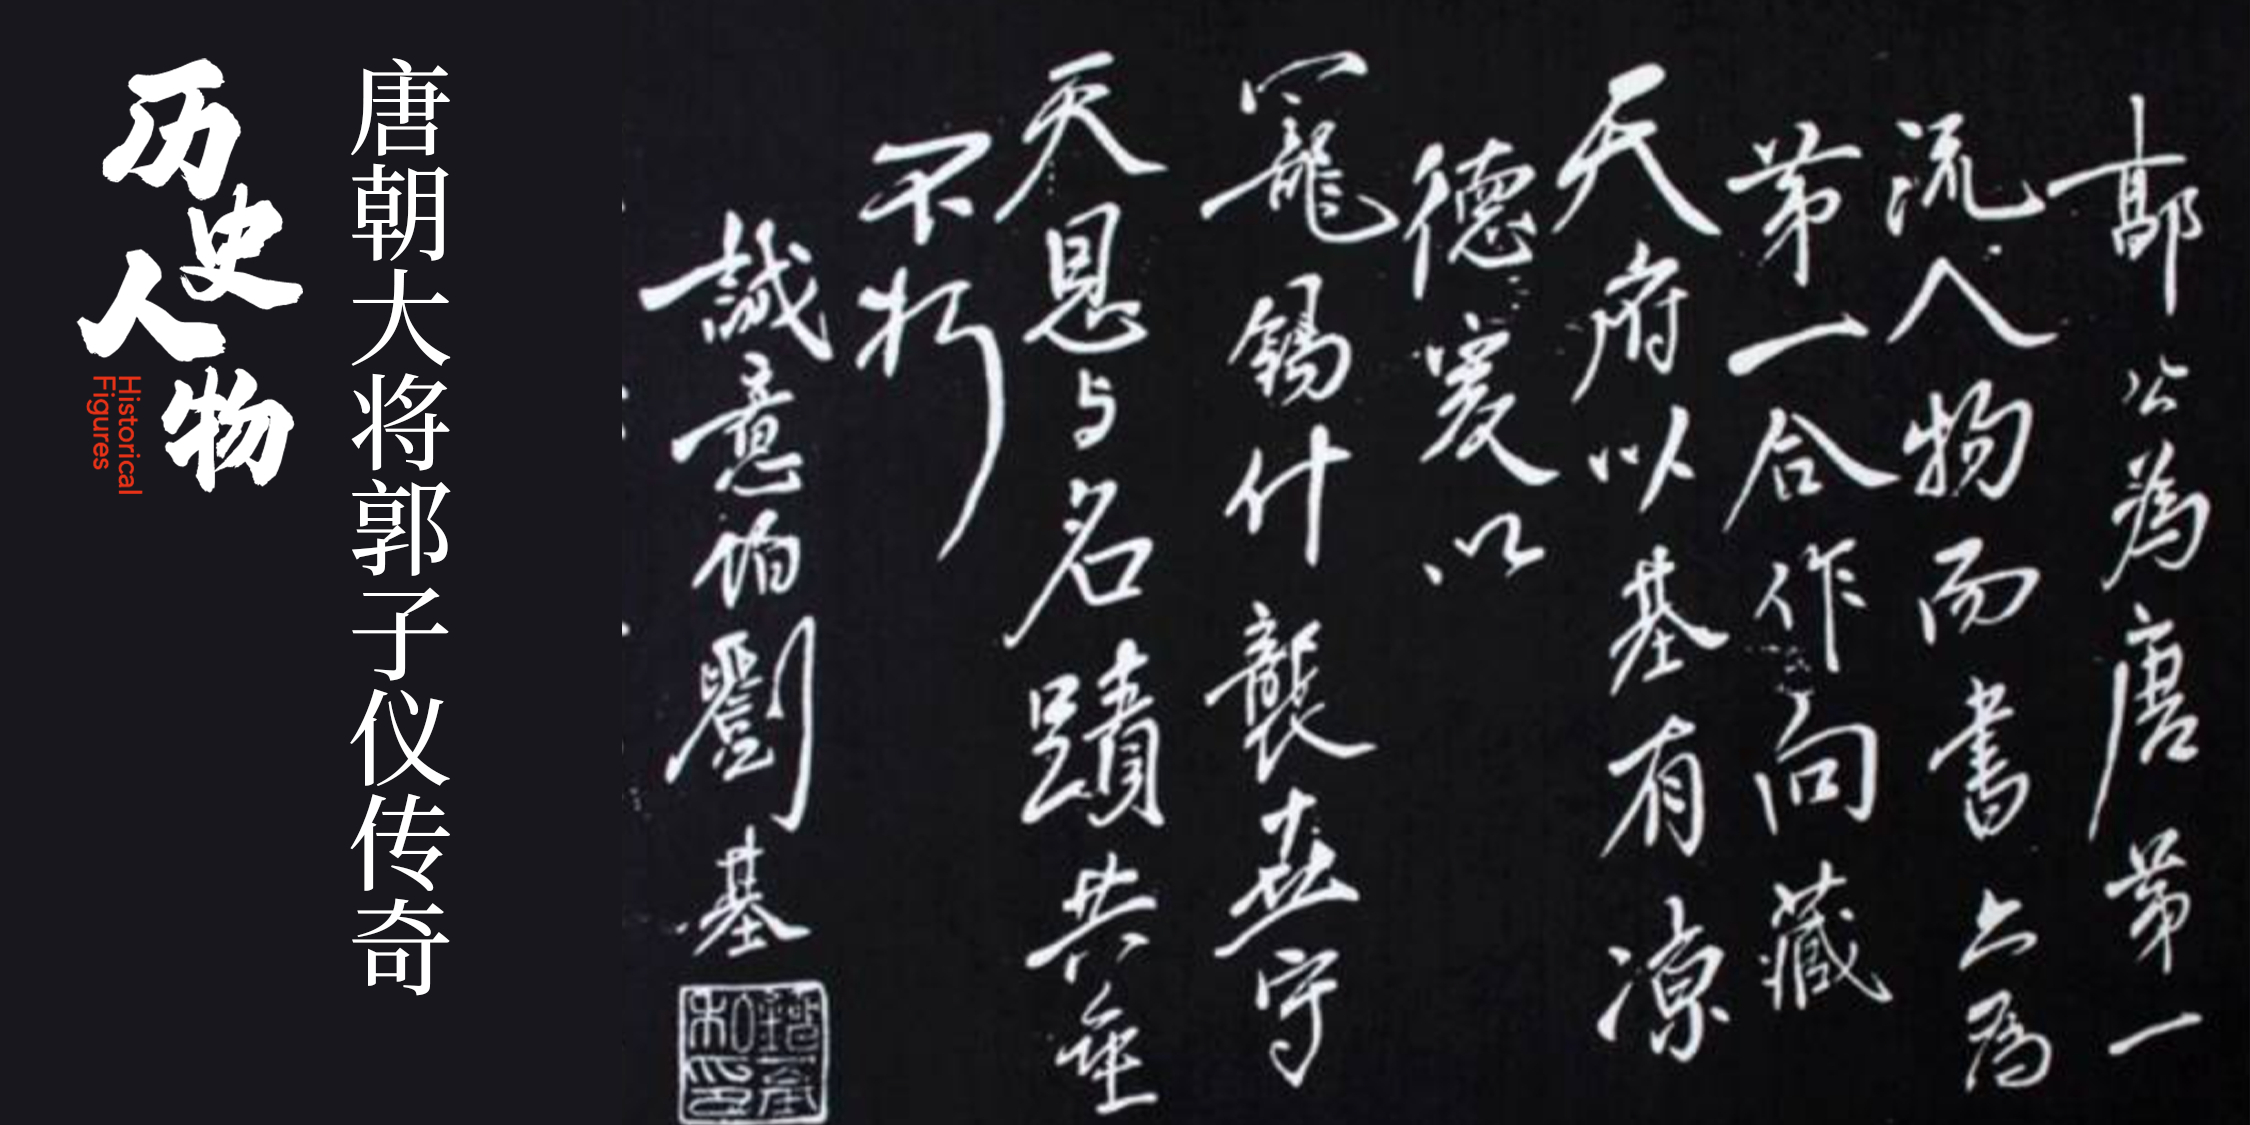 历史人物
Historical
Figures
唐朝大将郭子仪传奇
郭公為唐第一
流人物而書亦為
第一合作向藏
天府以基有涼
德爰以
寵錫什襲世守
天恩与名蹟共垂
不朽
誠意伯劉基